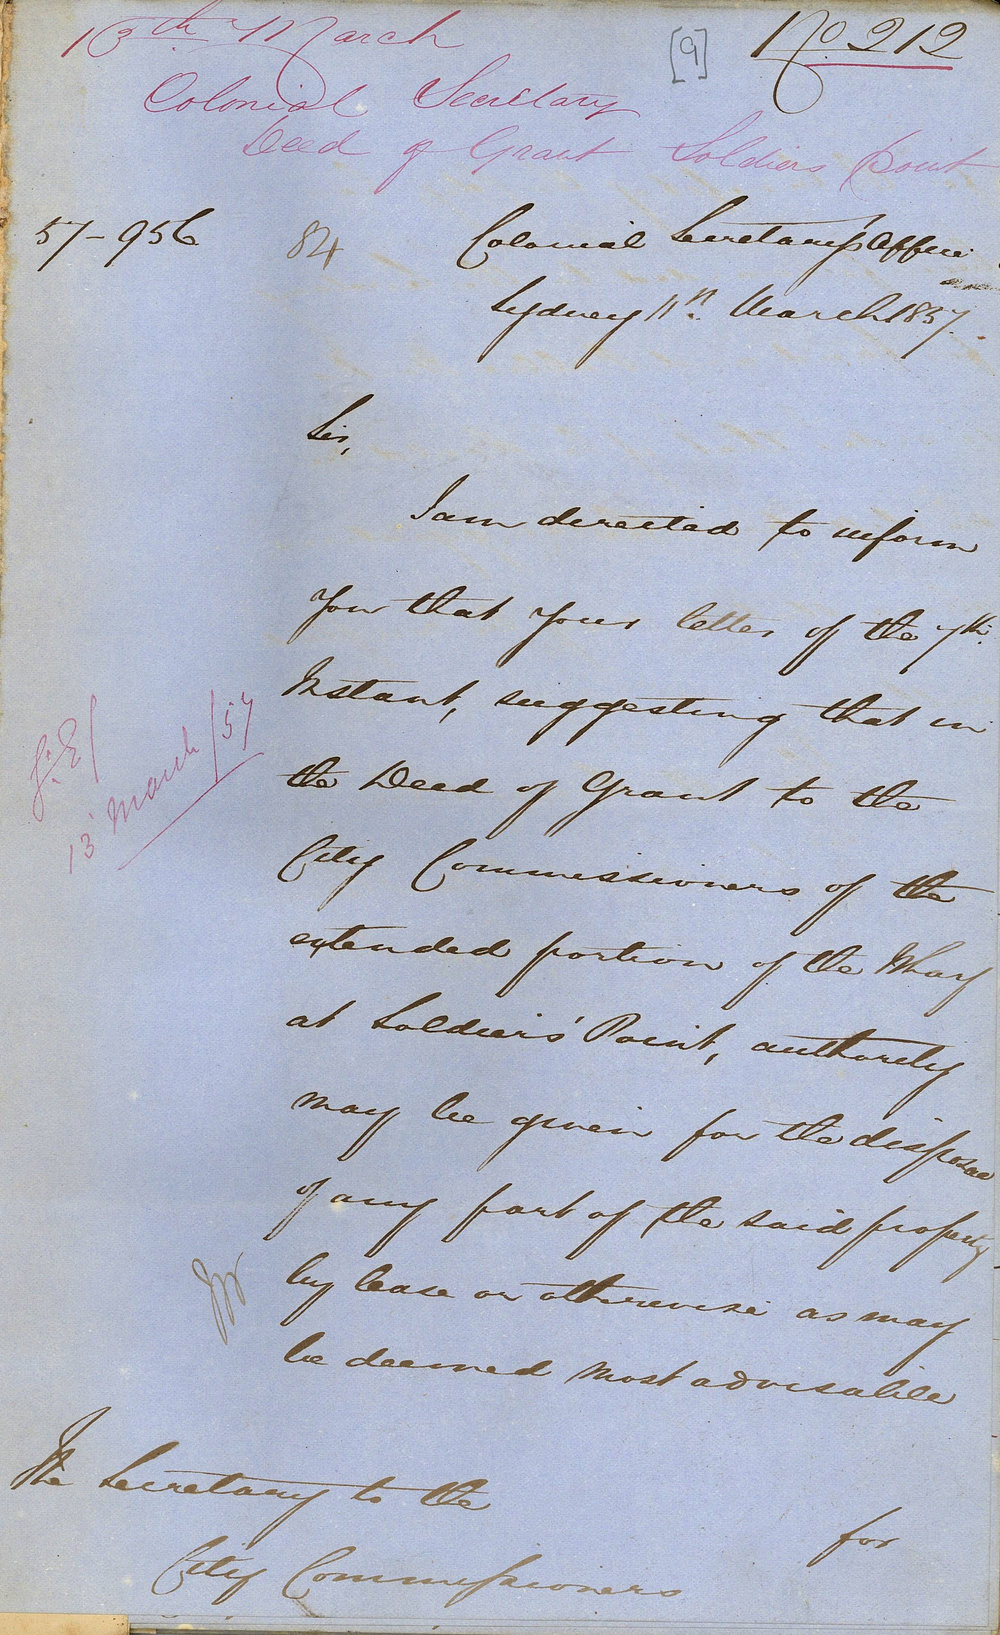 13th March
[9]
No. 212
Colonial Secretary
Deed of Grant Soldiers Point
57-956
84
Colonial Secretary's Office
Sydney 11th. March 1857.
Sir,
I am directed to inform
you that your letter of the 7th.
Instant, suggesting that in
the Deed of Grant to the
City Commissioners of the
extended portion of the Wharf
at Soldiers' Point, authority
may be given for the disposal
of any part of the said property
by lease or otherwise as may
be deemed most advisable
13 March /57
The Secretary to the
City Commissioners
for